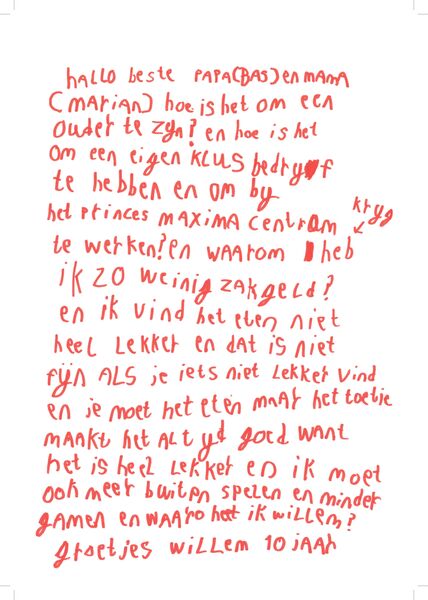 hallo beste PAPA(BAS) en mama
(marian) hoe is het om een
ouder te zyn? en hoe is het
om een eigen KLUS bedryf
te hebben en om by
het Princes maxima centrum
kryg
te werken? en waarom heb
ik zo weinig zakgeld?
en ik vind het eten niet
heel Lekker en dat is niet
fijn ALS je iets niet Lekker vind
en je moet het eten maar het toetje
maakt het ALtyd goed want
het is heel Lekker en ik moet
ook meer buiten spelen en minder
gamen en waarom heet ik willem?
groetjes willem 10 jaar